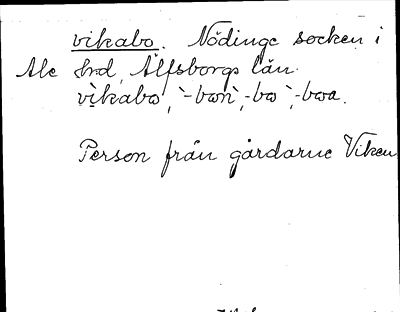 vikabo. Nödinge socken i
Ale hrd, Älfsborgs län.
vìkabo, `-bon, -bo `, -boa.
Person från gårdarne Viken